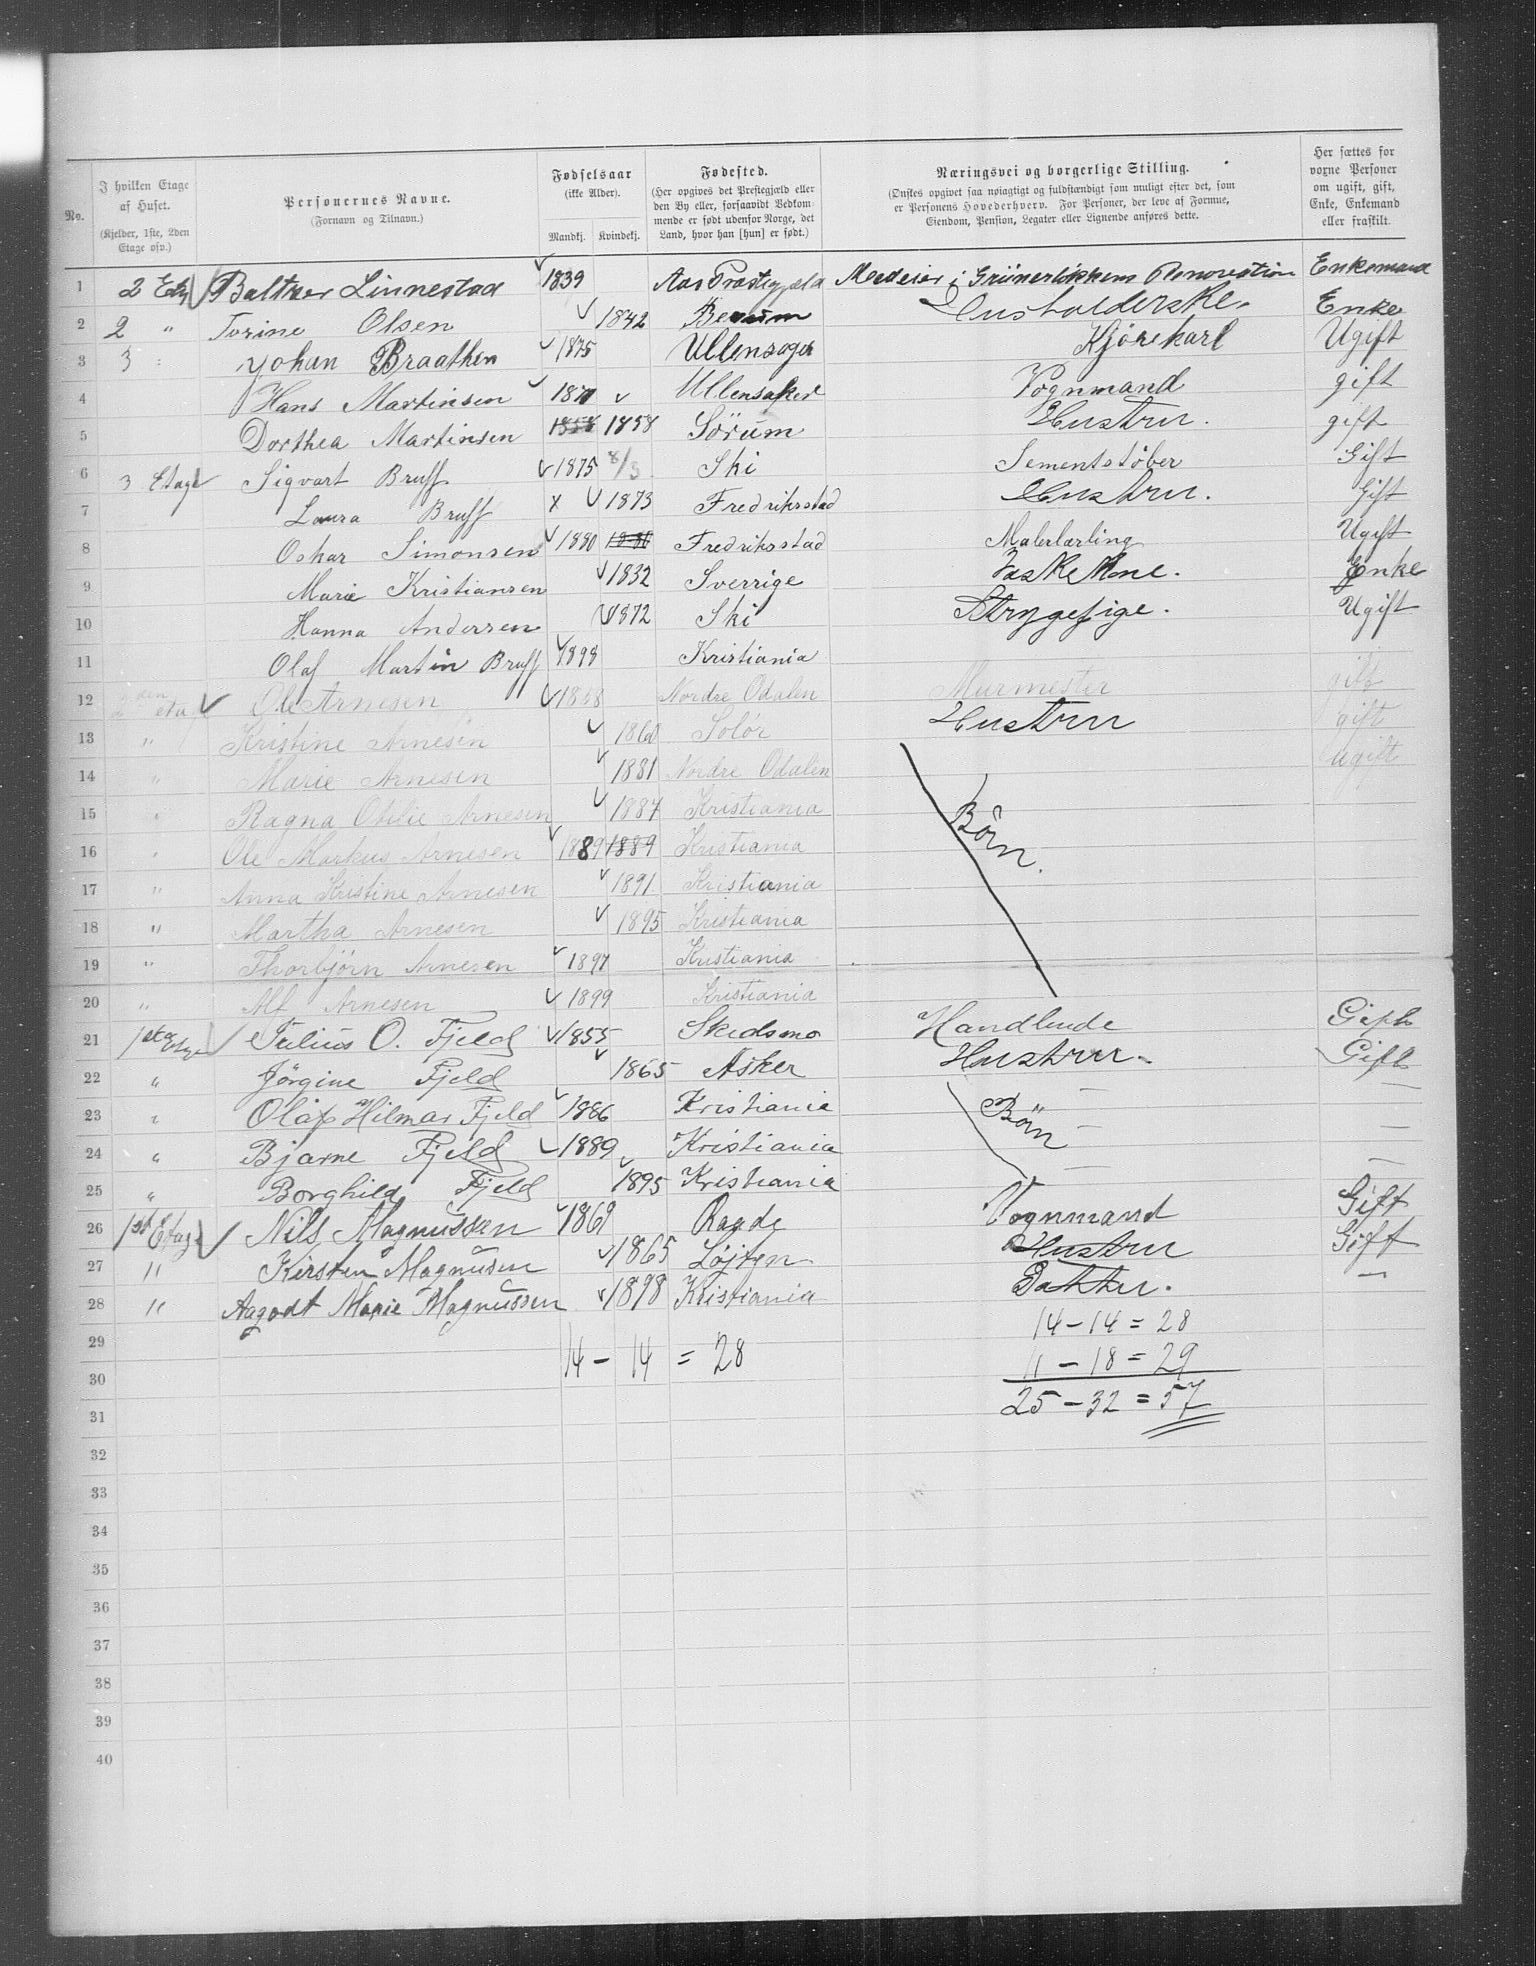 No.
I hvilken Etage af Huset. (Kjelder, 1ste, 2den Etage osv.)
Personernes Navne. (Fornavn og Tilnavn.)
Fødselsaar (ikke Alder). Mandkj. Kvindekj.
Fødested. (Her opgives det Prestegjæld eller den By eller, forsaavidt Vedkommende er født udenfor Norge, det Land, hvor han [hun] er født.)
Næringsvei og borgerlige Stilling. (Ønskes opgivet saa nøiagtigt og fuldstændigt som muligt efter det, som er Personens Hovederhverv. For Personer, der leve af Formue, Eiendom, Pension, Legater eller Lignende anføres dette.)
Her sættes for vorne Personer om ugift, gift, Enke, Enkemand eller fraskilt.
1 2 Etg Baltzer Linnestad 1839 Aas Præstegjæld Medeier i Grünerløkkens Renovation Enkemand
2 2 " Torine Olsen 1842 Berum Husholderske. Enke
3 3 Johan Braathen 1875 Ullensager Kjörekarl Ugift
4 Hans Martinsen 1871 Ullensaker Vognmand gift
5 Dorthea Martinsen 1858 1858 Sörum Hustru. gift
6 3 Etage Sigvart Bruff 1875 8/3 Ski Sementstöber Gift
7 Laura Bruff x 1873 Fredriksstad Hustru. Gift
8 Oskar Simonsen 1880 Fredriksstad Malerlærling Ugift
9 Marie Kristiansen 1832 Sverrige Vaskekone. Enke
10 Hanna Andersen 1872 Ski Strygepige. Ugift
11 Olaf Martin Bruff 1898 Kristiania
12 2den eta Ole Arnesen 1858 Nordre Odalen Murmester gift
13 " Kristine Arnesen 1860 Solör Hustru gift
14 " Marie Arnesen 1881 Nordre Odalen ugift
15 " Ragna Otilie Arnesen 1887 Kristiania Börn.
16 " Ole Markus Arnesen 1889 1889 Kristiania
17 " Anna Kristine Arnesen 1891 Kristiania
18 " Martha Arnesen 1895 Kristiania
19 " Thorbjörn Arnesen 1897 Kristiania
20 " Alf Arnesen 1899 Kristiania
21 1ste Etage Julius O. Fjeld 1855 Skedsmo Handlende Gift
22 " Jörgine Fjeld 1865 Asker Hustru Gift
23 " Olaf Hilmar Fjeld 1886 Kristiania Börn —
24 " Bjarne Fjeld 1889 Kristiania — —
25 " Borghild Fjeld 1895 Kristiania — —
26 1st Etage Nils Magnussen 1869 Raade Vognmand Gift
27 " Kirsten Magnusen 1865 Löjten Hustru Gift
28 " Aagodt Marie Magnussen 1898 Kristiania Datter. —
29 14 - 14 = 28
30 14 - 14 = 28 11 - 18 = 29
31 25 - 32 = 57
32
33
34
35
36
37
38
39
40